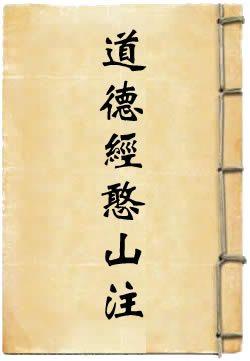 道德經憨山注